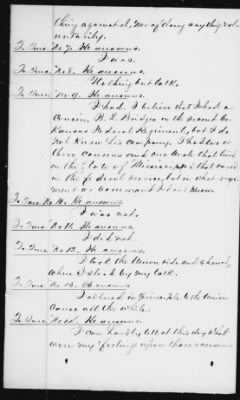 thing against it, nor of doing anything vol-
untarily.
To Ques. No 7. He answers.
I was.
To Ques. No 8. He answers.
Nothing but talk.
To Ques. No 9. He answers.
I had. I believe that I had a
Cousin, Bridges in the Second Ar-
Kansas Federal Regiment, but I do
not Know his company. I had two or
three Cousins and one Uncle that lived
in the State of Mississippi that were
in the federal service, but in what regi-
ment or Command I don't Know
To Ques. No 10. He answers
I was not.
To Ques. No 11. He answers
I did not.
To Ques. No 12. He answers.
I took the Union side and showed,
where I stood by my talk.
To Ques. No 13. He answers
I adhered in principle to the Union
Cause all the while.
To Ques. No 14. He answers
I can hardly tell at this day what
were my feelings upon those occasions